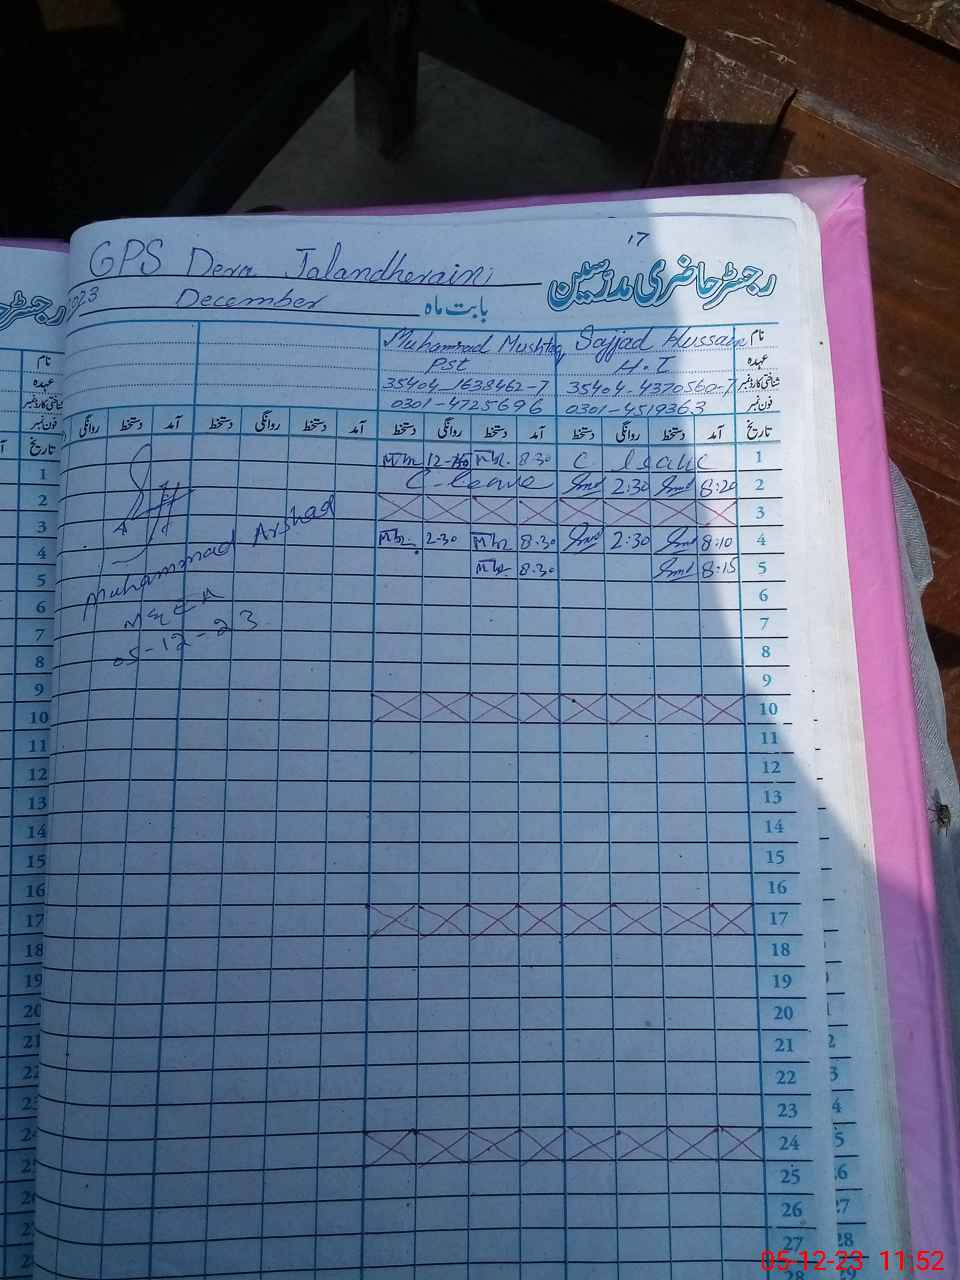 17
GPS Dera Jalandheraini رجسٹر حاضری مدرسین
2023 December بابت ماہ
Muhammad Mushtaq Sajjad Hussain نام
PST H.T عہدہ
35404-1638462-7 35404-4370560-7 شناختی کارڈ نمبر
0301-4725696 0301-4519363 فون نمبر
تاریخ آمد دستخط روانگی دستخط آمد دستخط روانگی دستخط آمد دستخط روانگی دستخط آمد دستخط روانگی
8:30 C leave 1
C-leave 2:30 8:20 2
3
2-30 8.30 2:30 8:10 4
8.30 8:15 5
Muhammad Arshad
MEA
05-12-23
6
7
8
9
10
11
12
13
14
15
16
17
18
19
20
21
22
23
24
25
26
27
28
نام
عہدہ
شناختی کارڈ نمبر
فون نمبر
تاریخ
1
2
3
4
5
6
7
8
9
10
11
12
13
14
15
16
17
18
19
20
21
22
23
24
25
26
05-12-23 11:52